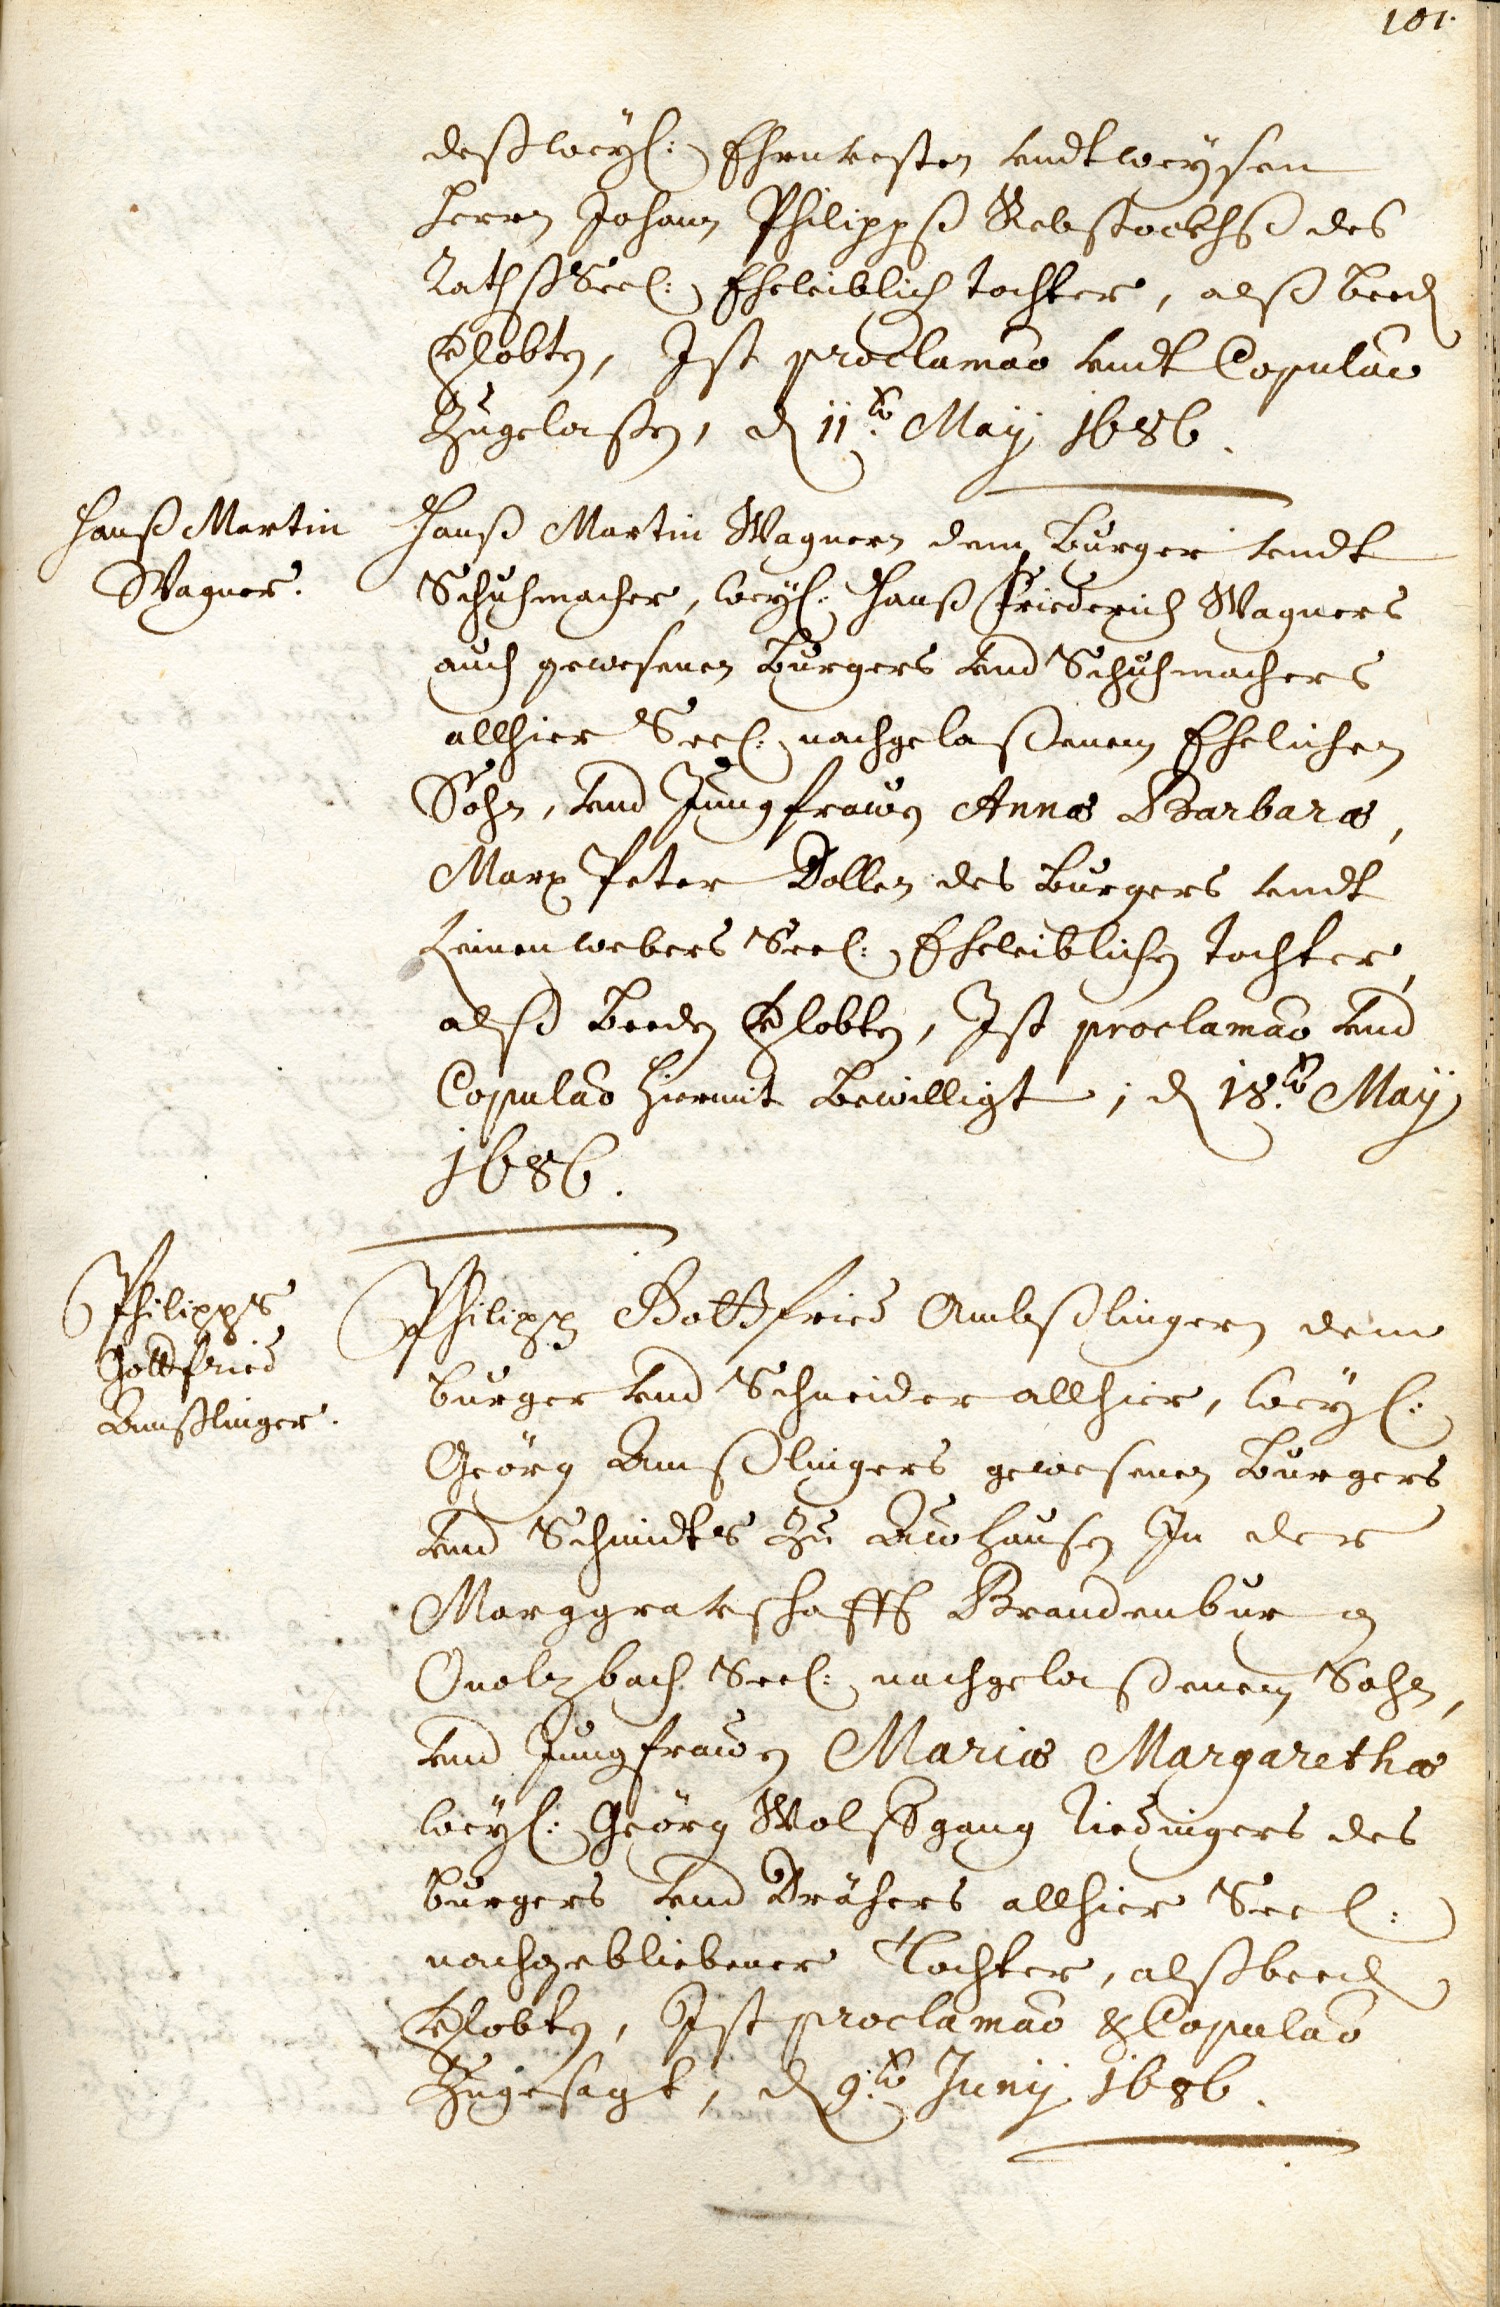 101.
deß weyl: Ehrnvesten vndt weysen
Herrn Johann Philippß Rebstockhß des
Rathß Seel: Eheleiblich tochter, alß beed
Vlobten, Ist proclamao vndt Copulao
Zugelaßen, d 11ten May 1686.
Hanß Martin
Wagner.
Hanß Martin Wagnern dem Burger vndt
Schuhmacher, weyl: Hanß Friederich Wagners
auch gewesenen Burgers vnd Schuhmachers
allhier Seel: nachgelaßenem Ehelichen
Sohn, vnd Jungfrawen Annæ Barbaræ,
Marx Peter Dollen des Burgers vndt
Leinenwebers Seel: Eheleiblichen tochter,
alß beeden Vlobten, Ist proclamao vnd
Copulao hiermit bewilligt, d 18ten May
1686.
Philipps
Gottfried
Amßlinger.
Philipp Gottfried Ambßlingern dem
burger vnd Schneider allhier, weyl:
Geörg Amßlingers gewesenen Burgers
vnd Schmidts Zu Awhausen In der
Marggravschafft Brandenburg
Onolzbach Seel: nachgelaßenem Sohn,
vnd Jungfrawen Mariæ Margarethæ
weyl: Geörg Wolffgang Riedingers des
burgers vnd Drähers allhier Seel:
nachgebliebener Tochter, alß beed
Vlobten, Ist proclamao & Copulao
Zugesagt, d 9ten Junij 1686.